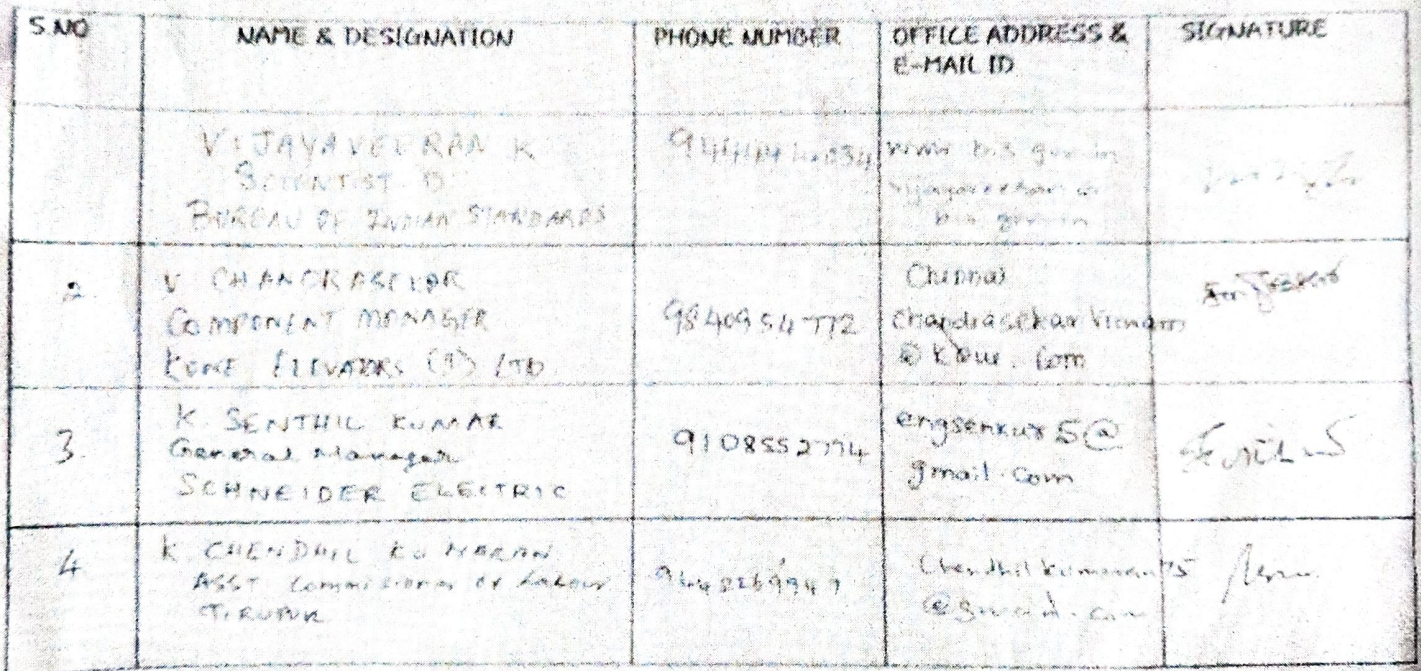 S.NO NAME & DESIGNATION PHONE NUMBER OFFICE ADDRESS & SIGNATURE
E-MAIL ID
VIJAYAVEERAN K
SCIENTIST D
BUREAU OF INDIAN STANDARDS
www bis gov in
bis gov in
2 V. CHANDRASEKAR
COMPONENT MANAGER
KONE ELEVATORS (I) LTD
9840954772
Chennai
@ kone.com
3 K. SENTHIL KUMAR
General Manager
SCHNEIDER ELECTRIC
9108552774
engsenkur5@
gmail.com
4 K. CHENDHIL KUMARAN
ASST. Commissioner of Labour
TIRUPUR
Chendhilkumaran75
@gmail.com